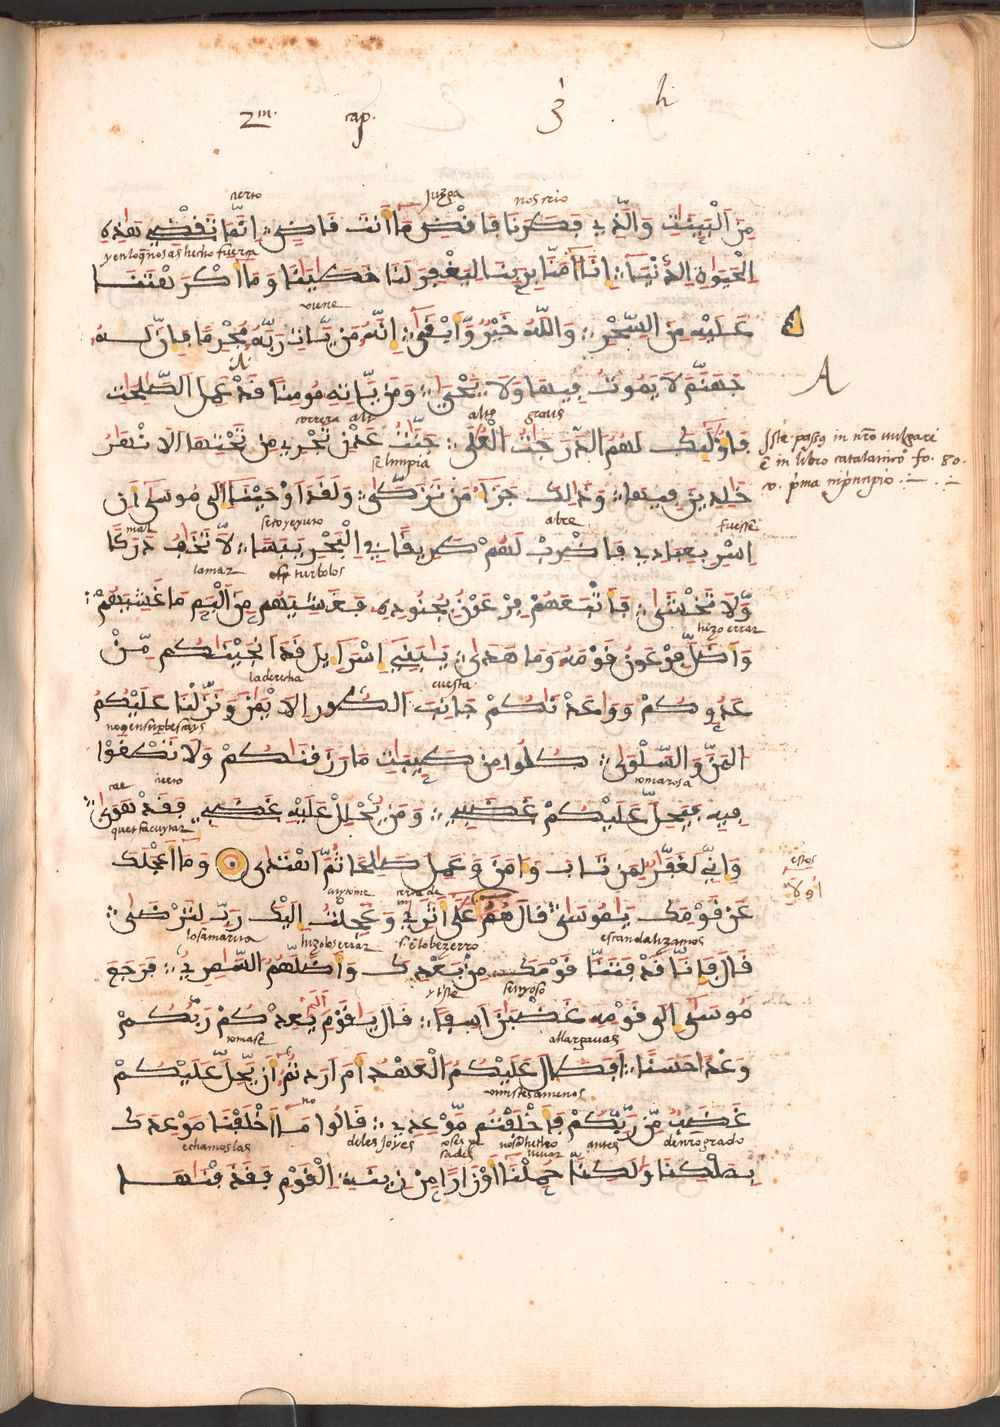 2m. cap. 3 h
çierto Juzga nos crio
مِنَ ٱلْبَيِّنَٰتِ وَالَّذِے فَطَرَنَا فَاقْضِ مَآ أَنتَ قَاضٍ اِنَّمَا تَقْضِے هَٰذِهِ
اِلْحَيَوٰةَ اَ۬لدُّنْيَآ اِنَّآ ءَامَنَّا بِرَبِّنَا لِيَغْفِرَ لَنَا خَطَٰيَٰنَا وَمَآ أَكْرَهْتَنَا
viene
عَلَيْهِ مِنَ اَ۬لسِّحْرِ وَاللَّهُ خَيْرٌ وَّأَبْقَىٰٓ اِنَّهُۥ مَنْ يَّاتِ رَبَّهُۥ مُجْرِماً فَإِنَّ لَهُۥ
جَهَنَّمَ لَا يَمُوتُ فِيهَا وَلَا يَحْيَىٰ وَمَنْ يَّاتِهِۦ مُومِناً قَدْ عَمِلَ اَ۬لصَّٰلِحَٰتِ
A
correra alto graus
فَأُوْلَٰٓئِكَ لَهُمُ اُ۬لدَّرَجَٰتُ اُ۬لْعُلَىٰ جَنَّٰتُ عَدْنٍ تَجْرِے مِن تَحْتِهَا اَ۬لَانْهَٰرُ
Iste passus in nro vulgari
in libro catalanico fo. 80.
v. prima in principio
se limpia
خَٰلِدِينَ فِيهَا وَذَٰلِكَ جَزَآءُ مَن تَزَكَّىٰ وَلَقَدَ اَوْحَيْنَآ إِلَىٰ مُوسَىٰٓ أَنِ
mar seco y exuto abre fuesse
اِسْرِ بِعِبَادِے فَاضْرِبْ لَهُمْ طَرِيقاً فِے اِ۬لْبَحْرِ يَبَساً لَّا تَخَٰفُ دَرَكاً
la mar turbolos
وَّلَا تَخْشَىٰ فَأَتْبَعَهُمْ فِرْعَوْنُ بِجُنُودِهِۦ فَغَشِيَهُم مِّنَ اَ۬لْيَمِّ مَا غَشِيَهُمْ
hizo errar
وَأَضَلَّ فِرْعَوْنُ قَوْمَهُۥ وَمَا هَدَىٰ يَٰبَنِےٓ إِسْرَآءِيلَ قَدَ اَنجَيْنَٰكُم مِّنْ
la derecha cuesta
عَدُوِّكُمْ وَوَٰعَدْنَٰكُمْ جَانِبَ اَ۬لطُّورِ اِ۬لَايْمَنَ وَنَزَّلْنَا عَلَيْكُمُ
اَ۬لْمَنَّ وَالسَّلْوَىٰ كُلُواْ مِن طَيِّبَٰتِ مَا رَزَقْنَٰكُمْ وَلَا تَطْغَوْاْ
cae tomarosa
فِيهِ فَيَحِلَّ عَلَيْكُمْ غَضَبِے وَمَنْ يَّحْلِلْ عَلَيْهِ غَضَبِے فَقَدْ هَوَىٰ
وَإِنِّے لَغَفَّارٌ لِّمَن تَابَ وَءَامَنَ وَعَمِلَ صَٰلِحاً ثُمَّ اَهْتَدَىٰ وَمَآ أَعْجَلَكَ
estos
اُوْلَآءِ
cerca de
عَن قَوْمِكَ يَٰمُوسَىٰ قَالَ هُمُۥٓ عَلَىٰٓ أَثَرِے وَعَجِلْتُ إِلَيْكَ رَبِّ لِتَرْضَىٰ
hizolos errar el bezerro escandalizamos
قَالَ فَإِنَّا قَدْ فَتَنَّا قَوْمَكَ مِنۢ بَعْدِكَ وَأَضَلَّهُمُ اُ۬لسَّامِرِيُّ فَرَجَعَ
y triste
مُوسَىٰٓ إِلَىٰ قَوْمِهِۦ غَضْبَٰنَ أَسِفاً قَالَ يَٰقَوْمِ أَلَمْ يَعِدْكُمْ رَبُّكُمْ
tomase allargavas
وَعْداً حَسَناً اَفَطَالَ عَلَيْكُمُ اُ۬لْعَهْدُ أَمَ اَرَدتُّمُۥٓ أَنْ يَّحِلَّ عَلَيْكُمْ
no
غَضَبٌ مِّن رَّبِّكُمْ فَأَخْلَفْتُم مَّوْعِدِے قَالُواْ مَآ أَخْلَفْنَا مَوْعِدَكَ
echamoslas de les joyes antes de nro grado
بِمَلْكِنَا وَلَٰكِنَّا حُمِّلْنَآ أَوْزَاراً مِّن زِينَةِ اِ۬لْقَوْمِ فَقَذَفْنَٰهَا